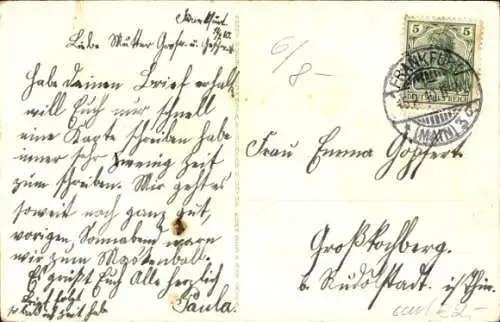 Frankfurt
Liebe Mutter Großm. u. Geschw.
Habe Deinen Brief erhalt.
will Euch nur schnell
eine Karte schreiben habe
immer sehr wenig Zeit
zum schreiben. Mir geht es
soweit noch ganz gut,
vorigen Sonnabend waren
wir zum Maskenball.
Es grüßt Euch Alle herzlich
Paula.
Brief folgt
Zeit habe
6/8-
5 5
FRANKFURT
(MAIN)
Frau Emma Göpfert.
Großkochberg.
b. Rudolstadt. i/Thür.
2,-